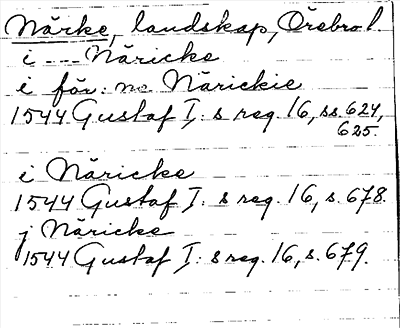 Närke, landskap, Örebro l.
i --- Näricke
i för: ne Närickie
1544 Gustaf I:s reg. 16, ss. 624,
625.
i Näricke
1544 Gustaf I:s reg. 16, s. 678.
j Näricke
1544 Gustaf I:s reg. 16, s. 679.